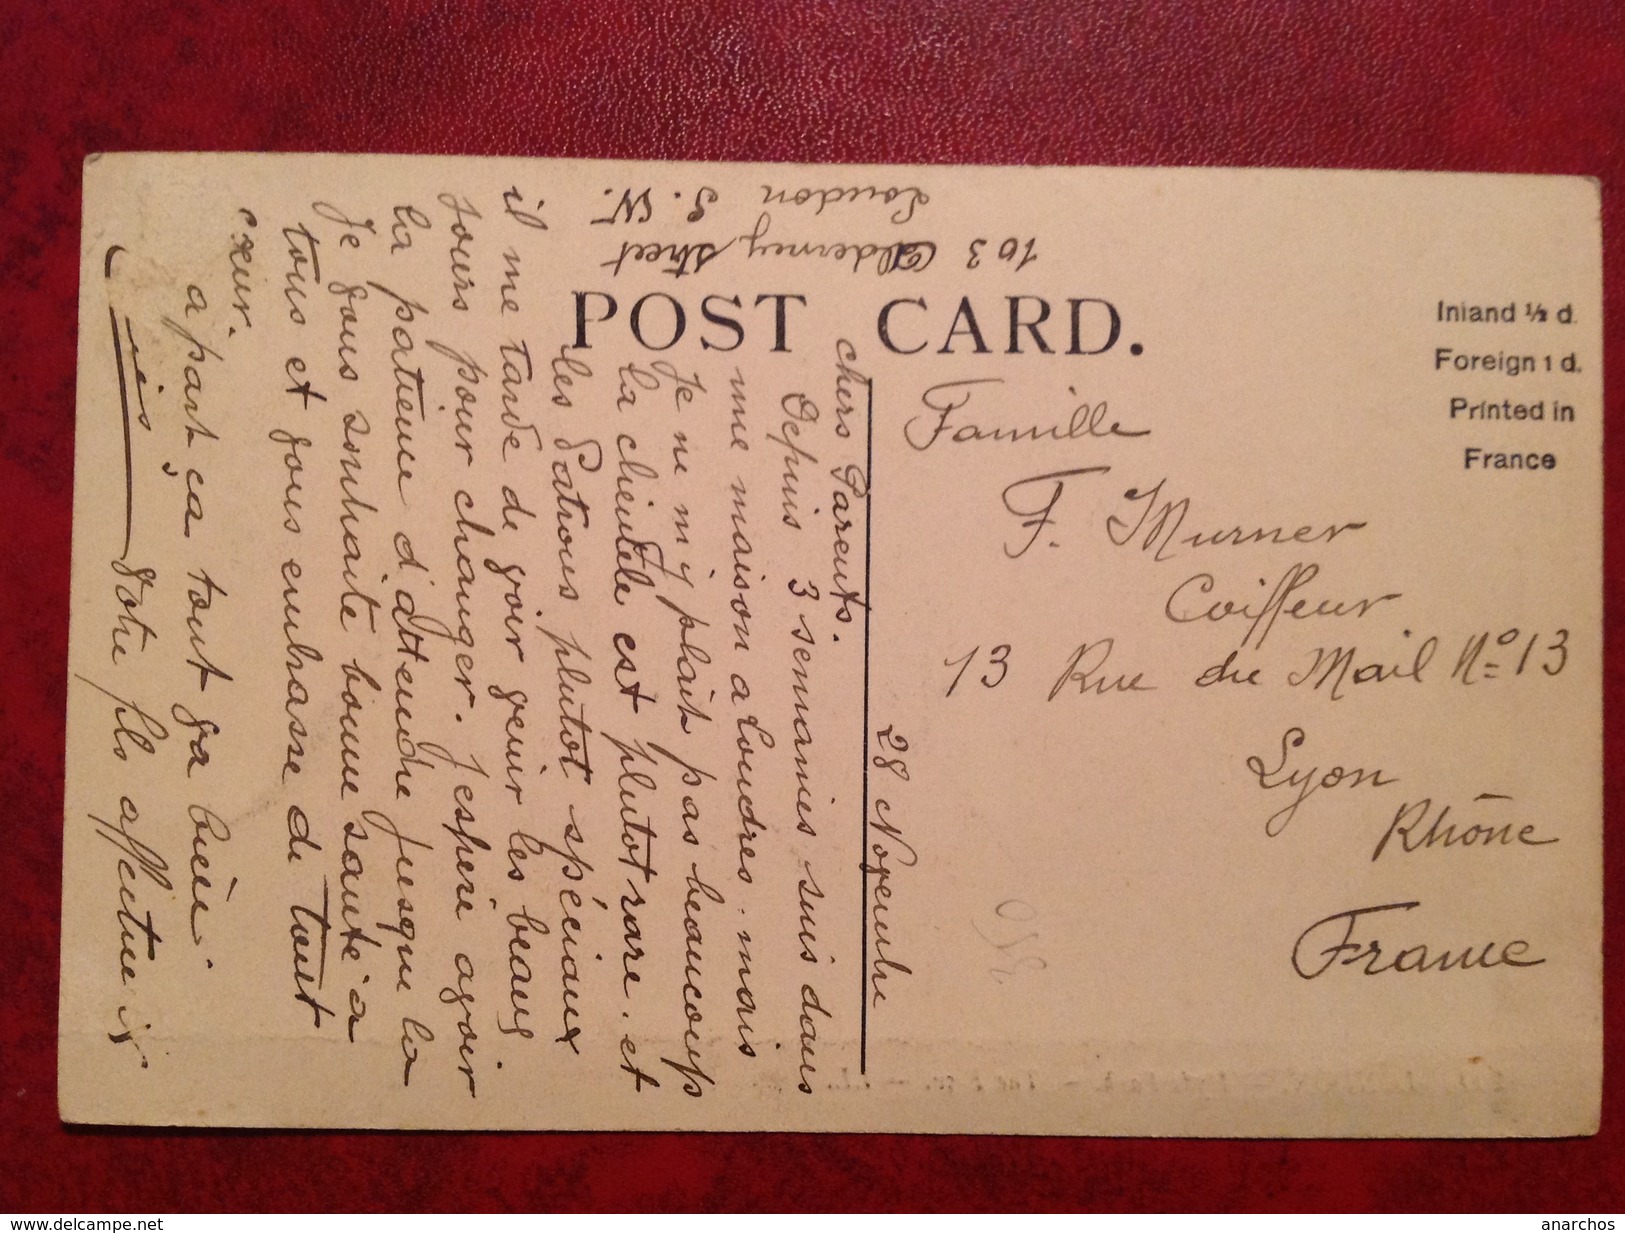 103 Alderney street
London S.W.
POST CARD.
Inland ½ d.
Foreign 1 d.
Printed in
France
28 Novembre
chers Parents.
Depuis 3 semaines suis dans
une maison a Londres. mais
Je ne m'y plaît pas beaucoups
la clientèle est plutot rare. et
les Patrons plutot spéciaux
il me tarde de voir venir les beaux
jours pour changer. J'espère avoir
la patience d'attendre jusque la
Je vous souhaite bonne santé à
tous et vous embrasse de tout
cœur.
a part ça tout va bien.
Votre fils affectueux
Famille
F. Murner
Coiffeur
13 Rue du Mail Nº 13
Lyon
Rhône
France
www.delcampe.net
anarchos